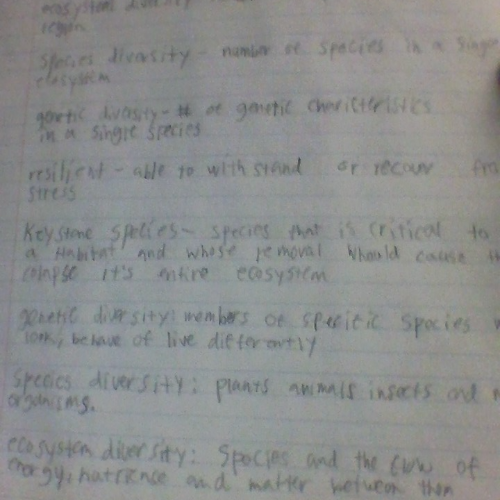 ecosystem diversity
region
species diversity - number of species in a single
ecosystem
genetic divrsity - # of genetic charicteristics
in a single species
resilient - able to with stand or recover from
stress
Keystone species - species that is critical to
a Habitat and whose removal whould cause th
colapse it's entire ecosystem
genetic diversity: members of specific species
look, behave of live differently
Species diversity: plants animals insects and
organisms.
ecosystem diversity: Species and the flow of
energy, nutrience and matter between them